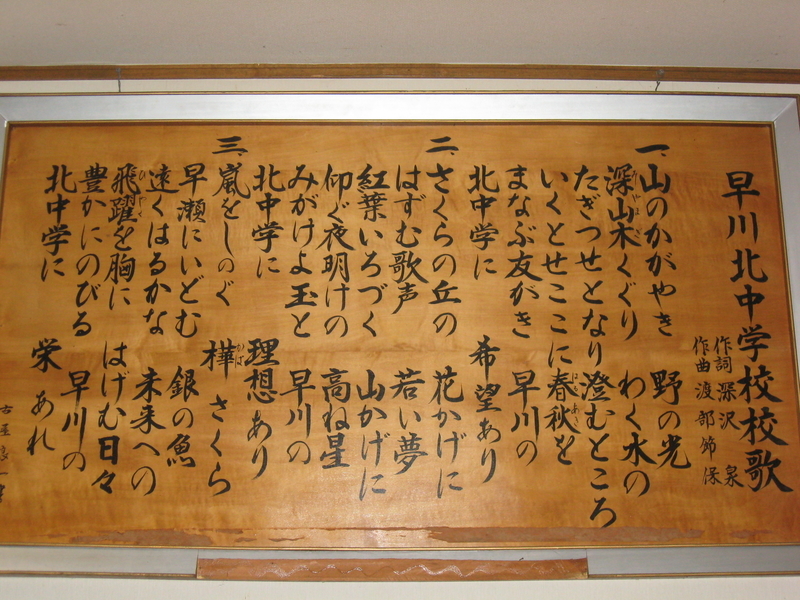 早川北中学校校歌
作詞 深沢 泉
作曲 渡部節保
一、山のかがやき 野の光
深山木くぐり わく水の
たぎつせとなり 澄むところ
いくとせここに 春秋を
まなぶ友がき 早川の
北中学に 希望あり
二、さくらの丘の 花かげに
はずむ歌声 若い夢
紅葉いろづく 山かげに
仰ぐ夜明けの 高ね星
みがけよ玉と 早川の
北中学に 理想あり
三、嵐をしのぐ 樺さくら
早瀬にいどむ 銀の魚
遠くはるかな 未来への
飛躍を胸に はげむ日々
豊かにのびる 早川の
北中学に 栄あれ